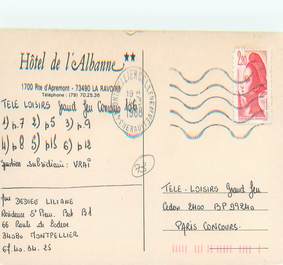 Hôtel de l'Albanne **
1700 Rte d'Apremont - 73490 LA RAVOIRE
Téléphone : (79) 70.25.36
TELE LOISIRS Grand Jeu Concours
1) p.7 2) p5 3) p.9
4) p8 5) p15 6) p12
Question subsidiaire : VRAI
DEDIEU LILIANE
Résidence Bat B1
66 Route de Lodève
34080 MONTPELLIER
67.40.04.25
2,20
1988
HERAULT
73
TELE-LOISIRS Grand Jeu
Cedex 2400 BP 29240
PARIS CONCOURS